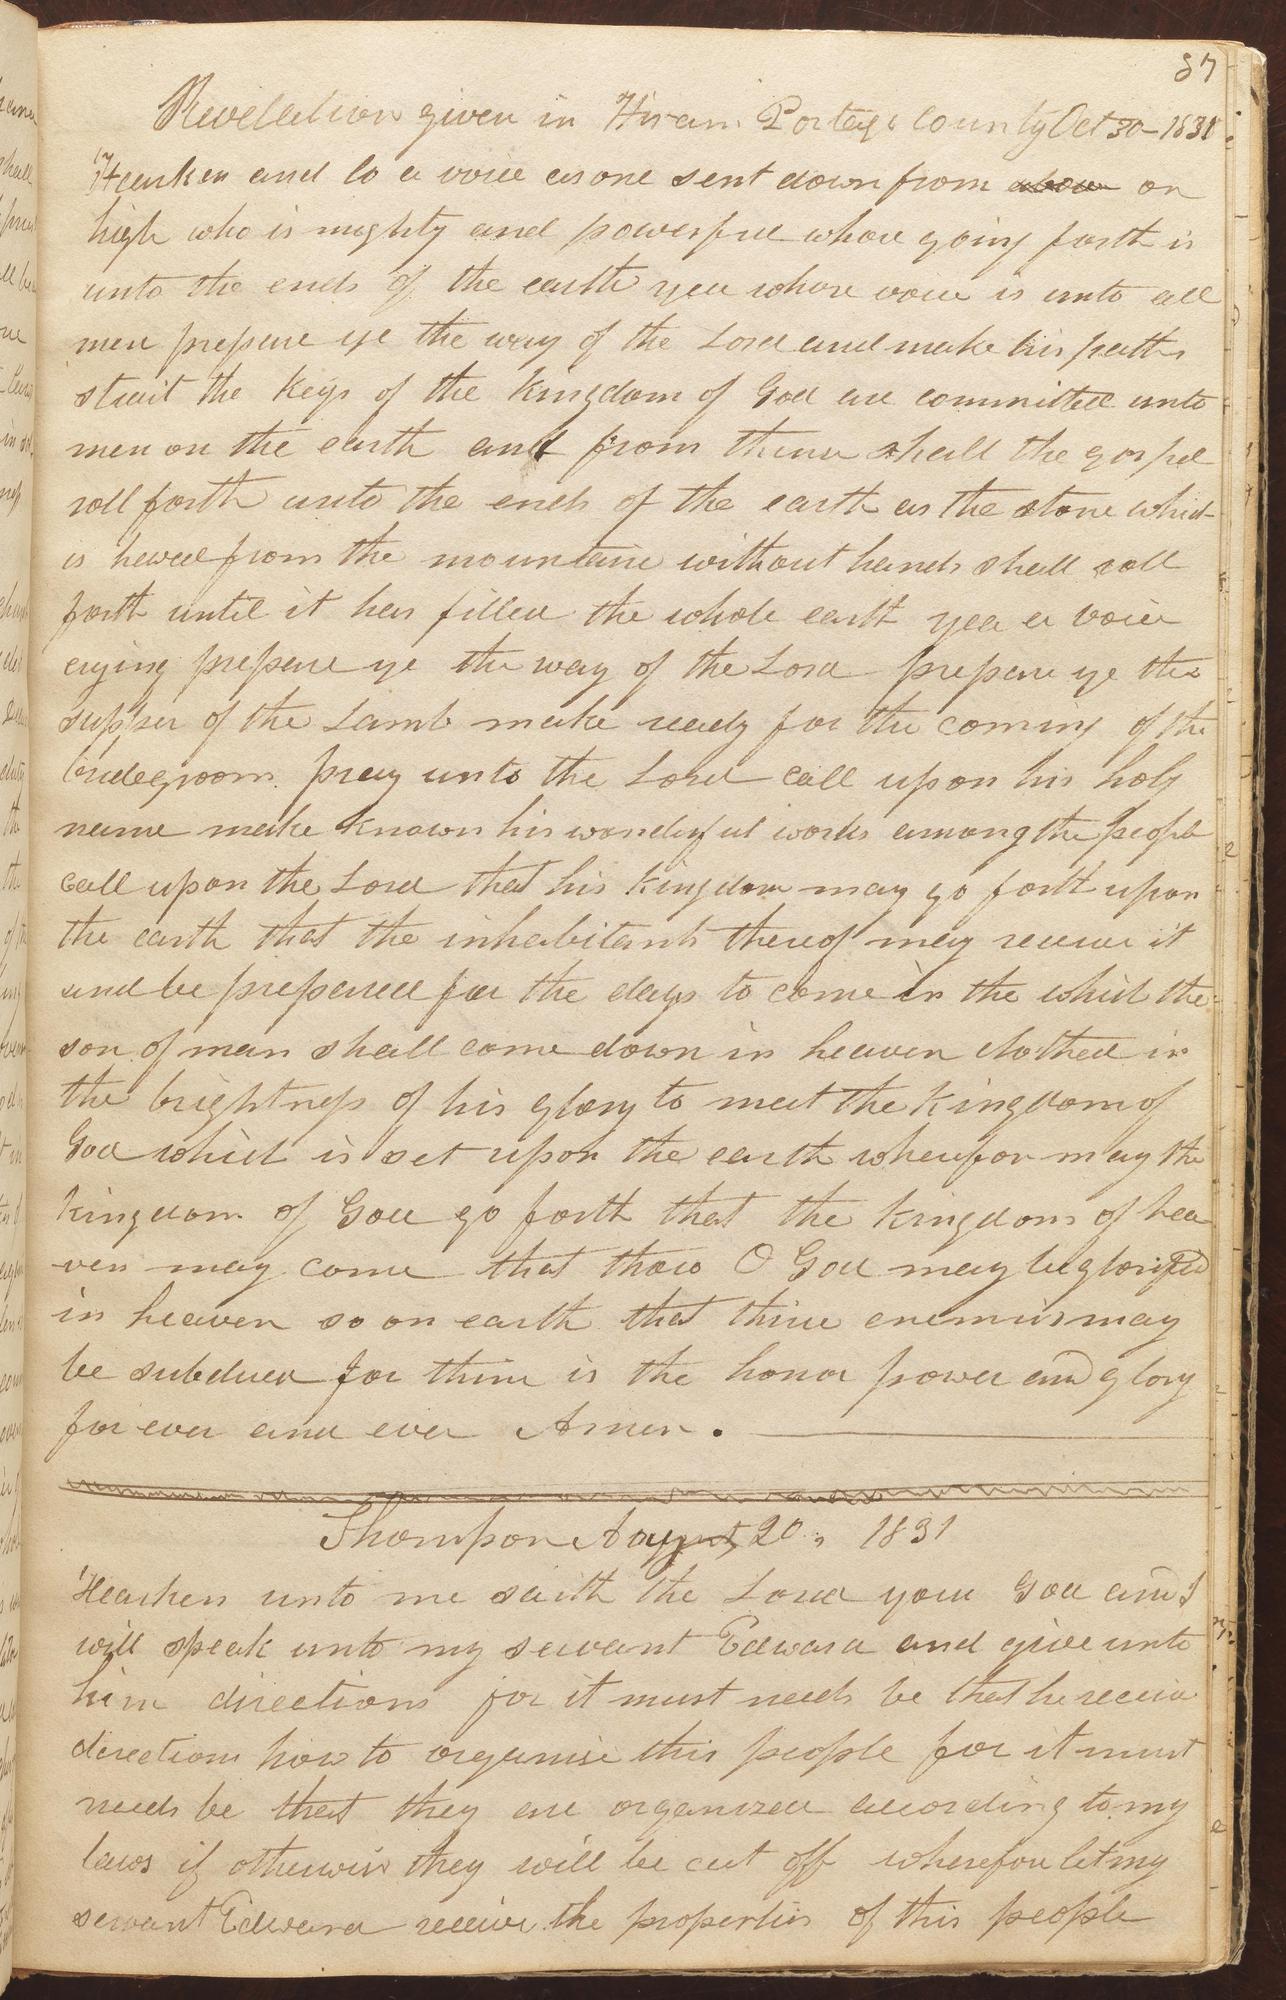 87
Revelation given in Hiram Portage County Oct 30 - 1831
Hearken and lo a voice as one sent down from above on
high who is mighty and powerful whose going forth is
unto the ends of the earth yea whose voice is unto all
men prepare ye the way of the Lord and make his paths
strait the keys of the kingdom of God are committed unto
men on the earth and from thence shall the gospel
roll forth unto the ends of the earth as the stone which
is hewed from the mountain without hands shall roll
forth until it has filled the whole earth yea a voice
crying prepare ye the way of the Lord prepare ye the
supper of the Lamb make ready for the coming of the
bridegroom pray unto the Lord call upon his holy
name make known his wonderful works among the people
call upon the Lord that his kingdom may go forth upon
the earth that the inhabitants thereof may receive it
and be prepared for the days to come in the which the
son of man shall come down in heaven clothed in
the brightness of his glory to meet the kingdom of
God which is set upon the earth wherefor may the
kingdom of God go forth that the kingdom of hea
ven may come that thou O God may be glorified
in heaven so on earth that thine enemies may
be subdued for thine is the honor power and glory
for ever and ever Amen.
Thompson August 20, 1831
Hearken unto me saith the Lord your God and I
will speak unto my servant Edward and give unto
him directions for it must needs be that he receive
directions how to organise this people for it must
needs be that they are organized according to my
laws if otherwise they will be cut off wherefore let my
servant Edward receive the properties of this people